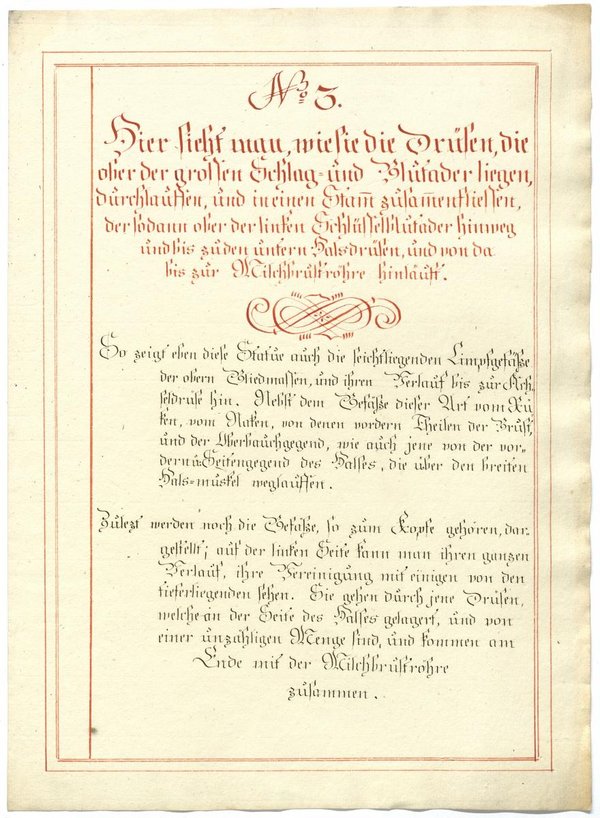 No 3.
Hier sieht man, wie sie die Drüsen, die
ober der grossen Schlag- und Blutader liegen,
durchlauffen, und in einen Stam̅ zusammenfliessen,
der sodann ober der linken Schlüsselblutader hinweg
und bis zu den untern Halsdrüsen, und von da
bis zur Milchbruströhre hinläuft.
So zeigt eben diese Statue auch die seichtliegenden Limpfgefäße
der obern Gliedmassen, und ihren Verlauf bis zur Ach-
seldrüse hin. Nebst dem Gefäße dieser Art vom Rü-
ken, vom Naken, von denen vordern Theilen der Brust,
und der Oberbauchgegend, wie auch jene von der vor-
dern u: Seitengegend des Halses, die über den breiten
Hals-muskel weglauffen.
Zulezt werden noch die Gefäße, so zum Kopfe gehören, dar-
gestellt; auf der linken Seite kann man ihren ganzen
Verlauf, ihre Vereinigung mit einigen von den
tieferliegenden sehen. Sie gehen durch jene Drüsen,
welche an der Seite des Halses gelagert, und von
einer unzähligen Menge sind, und kommen am
Ende mit der Milchbruströhre
zusammen.